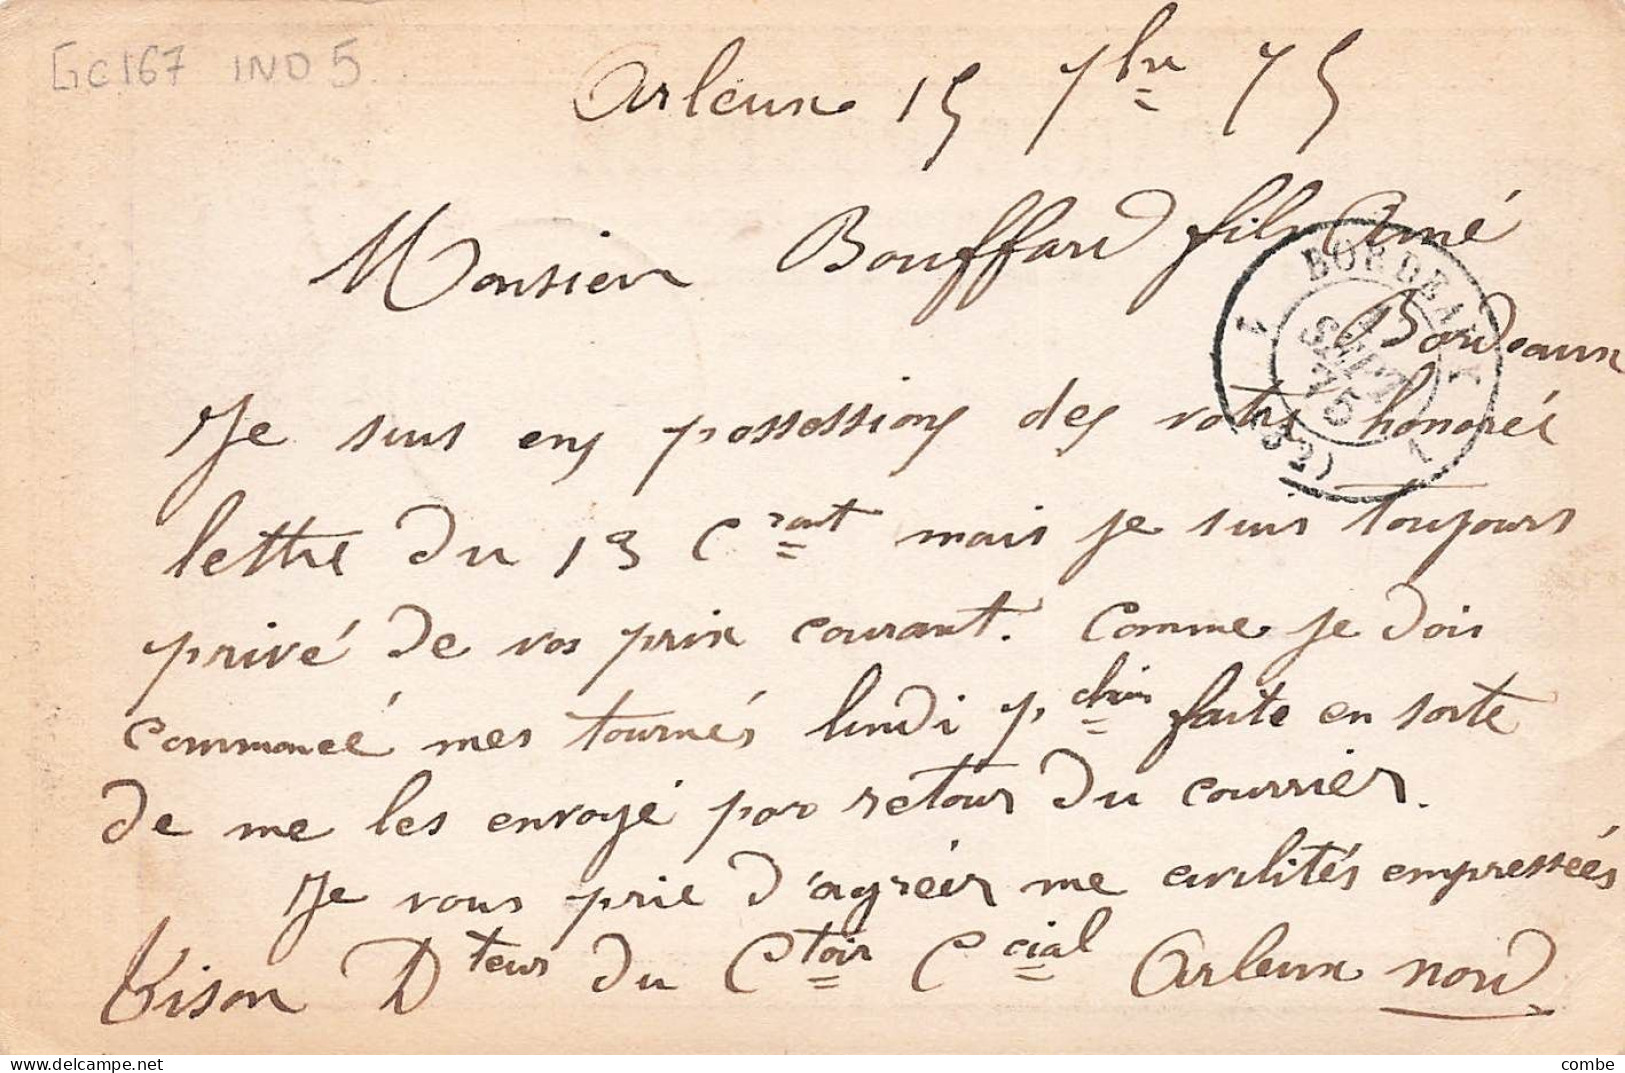 GC167 IND 5
Arleux 15 7bre 75
Monsieur Bouffard fils Ainé
Bordeaux
BORDEAUX
SEPT
75
(32)
Je suis en possession de votre honorée
lettre du 13 Crant mais je suis toujours
privé de vos prix courant. Comme je dois
commoncé mes tournés lundi pchain faite en sorte
de me les envoyé par retour du courrier.
Je vous prie d'agréér me civilités empressées
Kison Dteur du Ctoir Ccial Arleux nord
combe
delcampe.net